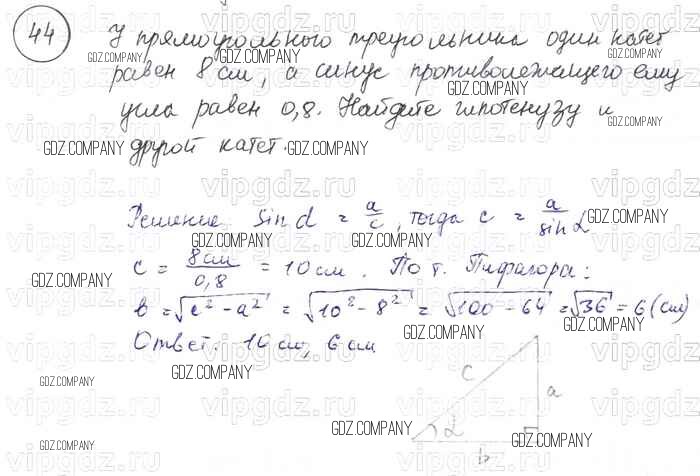 44 У прямоугольного треугольника один катет
равен 8 см, а синус противолежащего ему
угла равен 0,8. Найдите гипотенузу и
другой катет.
Решение. sin α = a/c, тогда c = a/sin α
c = 8см/0,8 = 10 см. По т. Пифагора:
b = √c² - a² = √10² - 8² = √100 - 64 = √36 = 6 (см)
Ответ. 10 см, 6 см
c
a
α
b
GDZ.COMPANY
vipgdz.ru